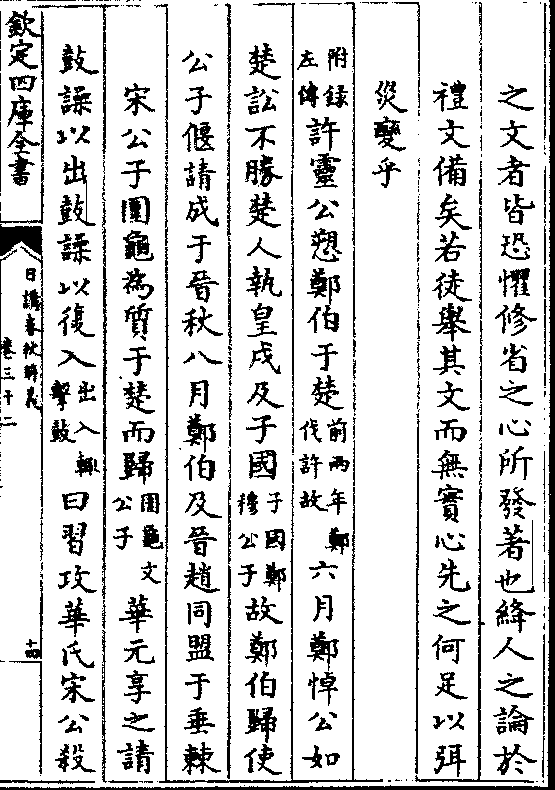 之文者皆恐懼修省之心所發著也絳人之論於
禮文備矣若徒舉其文而無實心先之何足以弭
災變乎
附録左傳許靈公愬鄭伯于楚前兩年鄭伐許故六月鄭悼公如
楚訟不勝楚人執皇戌及子國子國鄭穆公子故鄭伯歸使
公子偃請成于晉秋八月鄭伯及晉趙同盟于垂棘
宋公子圍龜為質于楚而歸圍龜文公子華元享之請
鼓譟以出鼓譟以復入出入輒擊鼓曰習攻華氏宋公殺
欽定四庫全書
日講春秋解義
卷三十二
十四